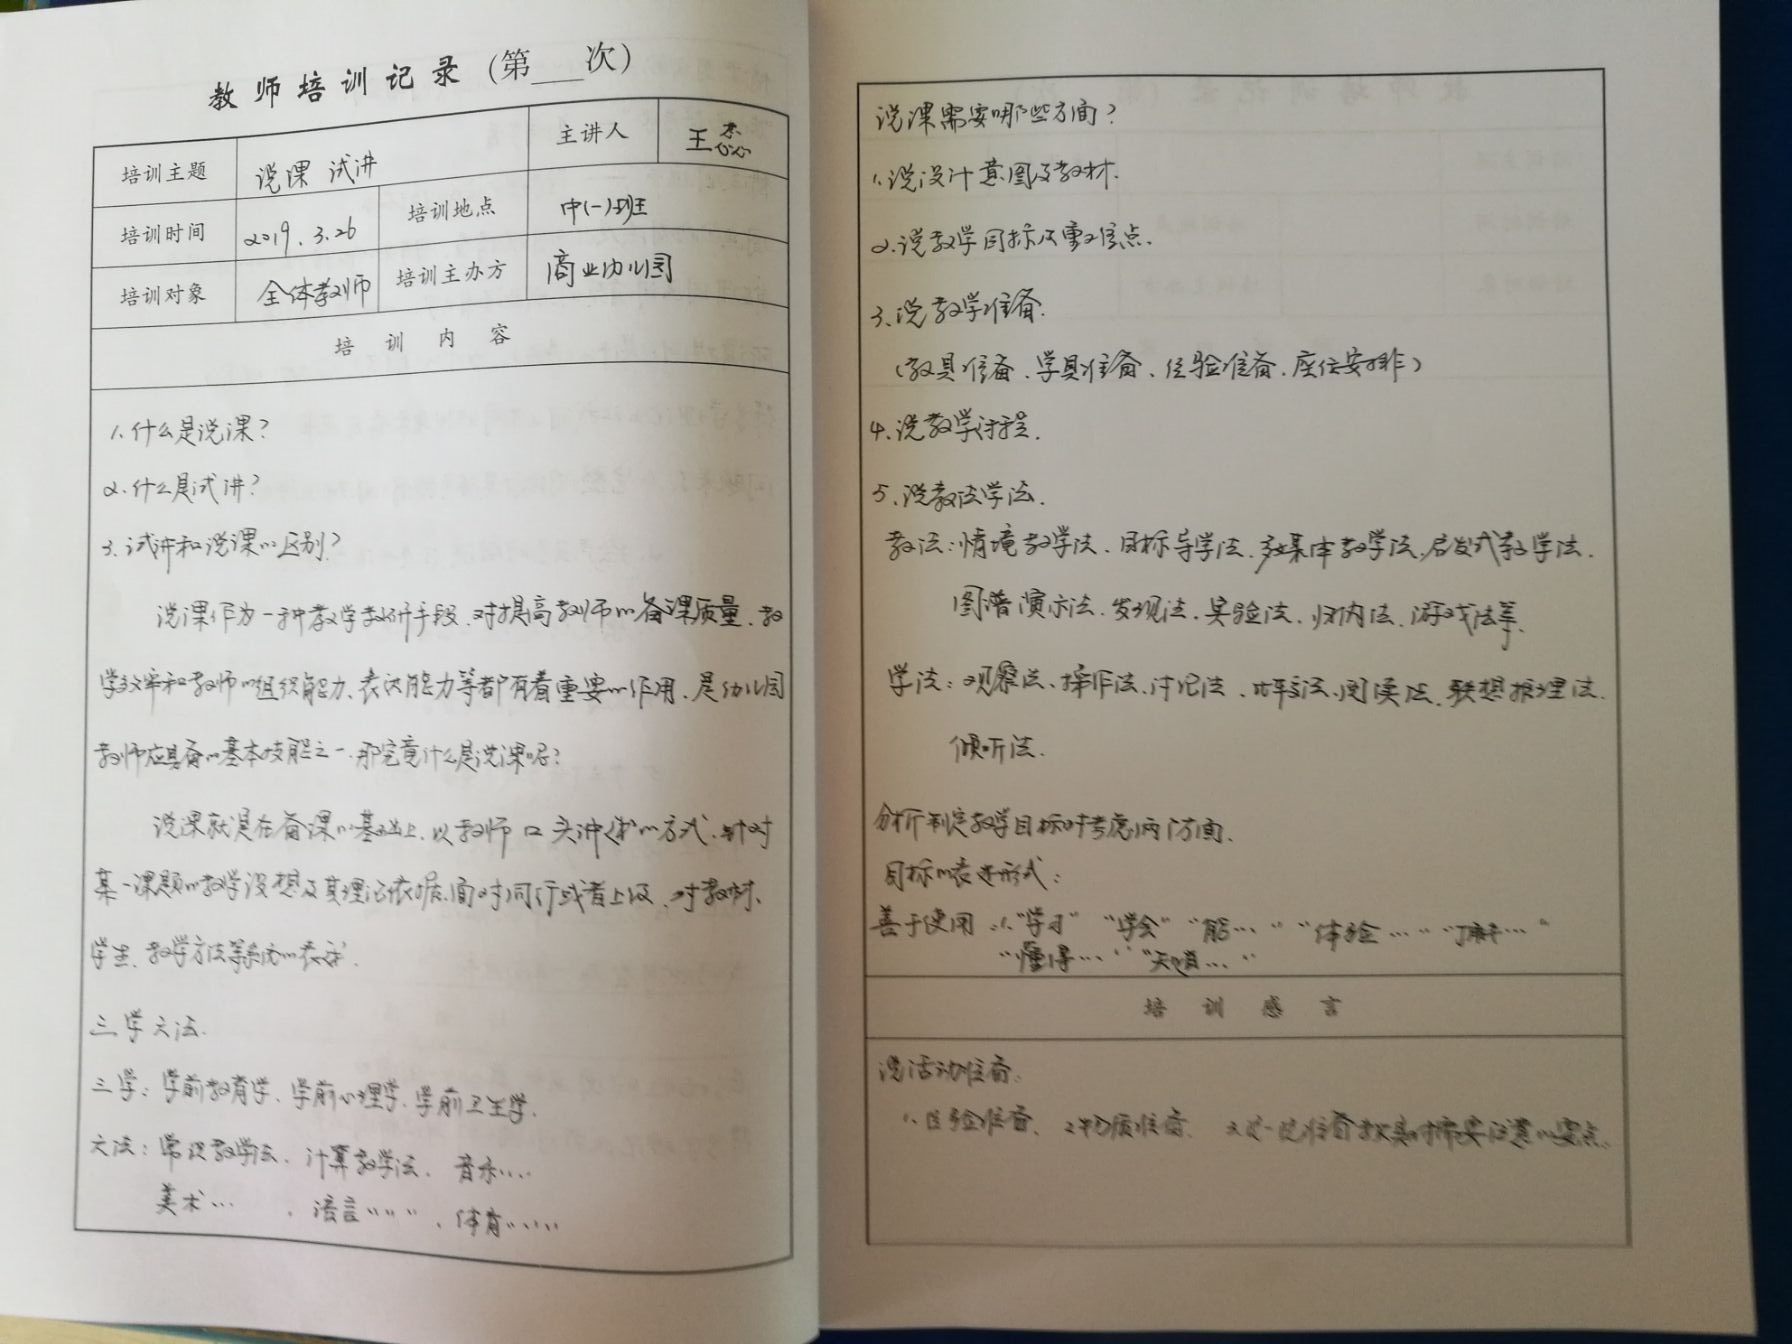 教师培训记录(第___次)
培训主题 说课 试讲 主讲人 王
培训时间 2019.3.26 培训地点 中(一)班
培训对象 全体教师 培训主办方 商业幼儿园
培训内容
1.什么是说课?
2.什么是试讲?
3.试讲和说课的区别?
说课作为一种教学教研手段,对提高教师的备课质量、教
学效率和教师的组织能力、表达能力等都有着重要的作用,是幼儿园
教师应具备的基本技能之一,那究竟什么是说课呢?
说课就是在备课的基础上,以教师口头讲述的方式,针对
某一课题的教学设想及其理论依据,面对同行或者上级,对教材、
学生、教学方法等系统的表述.
三学六法.
三学:学前教育学、学前心理学、学前卫生学.
六法:常识教学法、计算教学法、音乐....
美术... 、语言..... 、体育.....
说课需要哪些方面?
1.说设计意图及教材.
2.说教学目标及重难点.
3.说教学准备.
(教具准备、学具准备、经验准备、座位安排)
4.说教学过程.
5.说教法学法.
教法:情境教学法、目标导学法、多媒体教学法、启发式教学法、
图谱演示法、发现法、实验法、归纳法、游戏法等.
学法:观察法、操作法、讨论法、法、阅读法、联想推理法、
倾听法.
分析制定教学目标时考虑两方面.
目标的表述形式:
善于使用:"学习" "学会" "能..." "体验..." "了解..."
"懂得..." "知道..."
培训感言
说活动准备.
1.经验准备、2.物质准备、3.说一说准备教具时需要注意的要点.